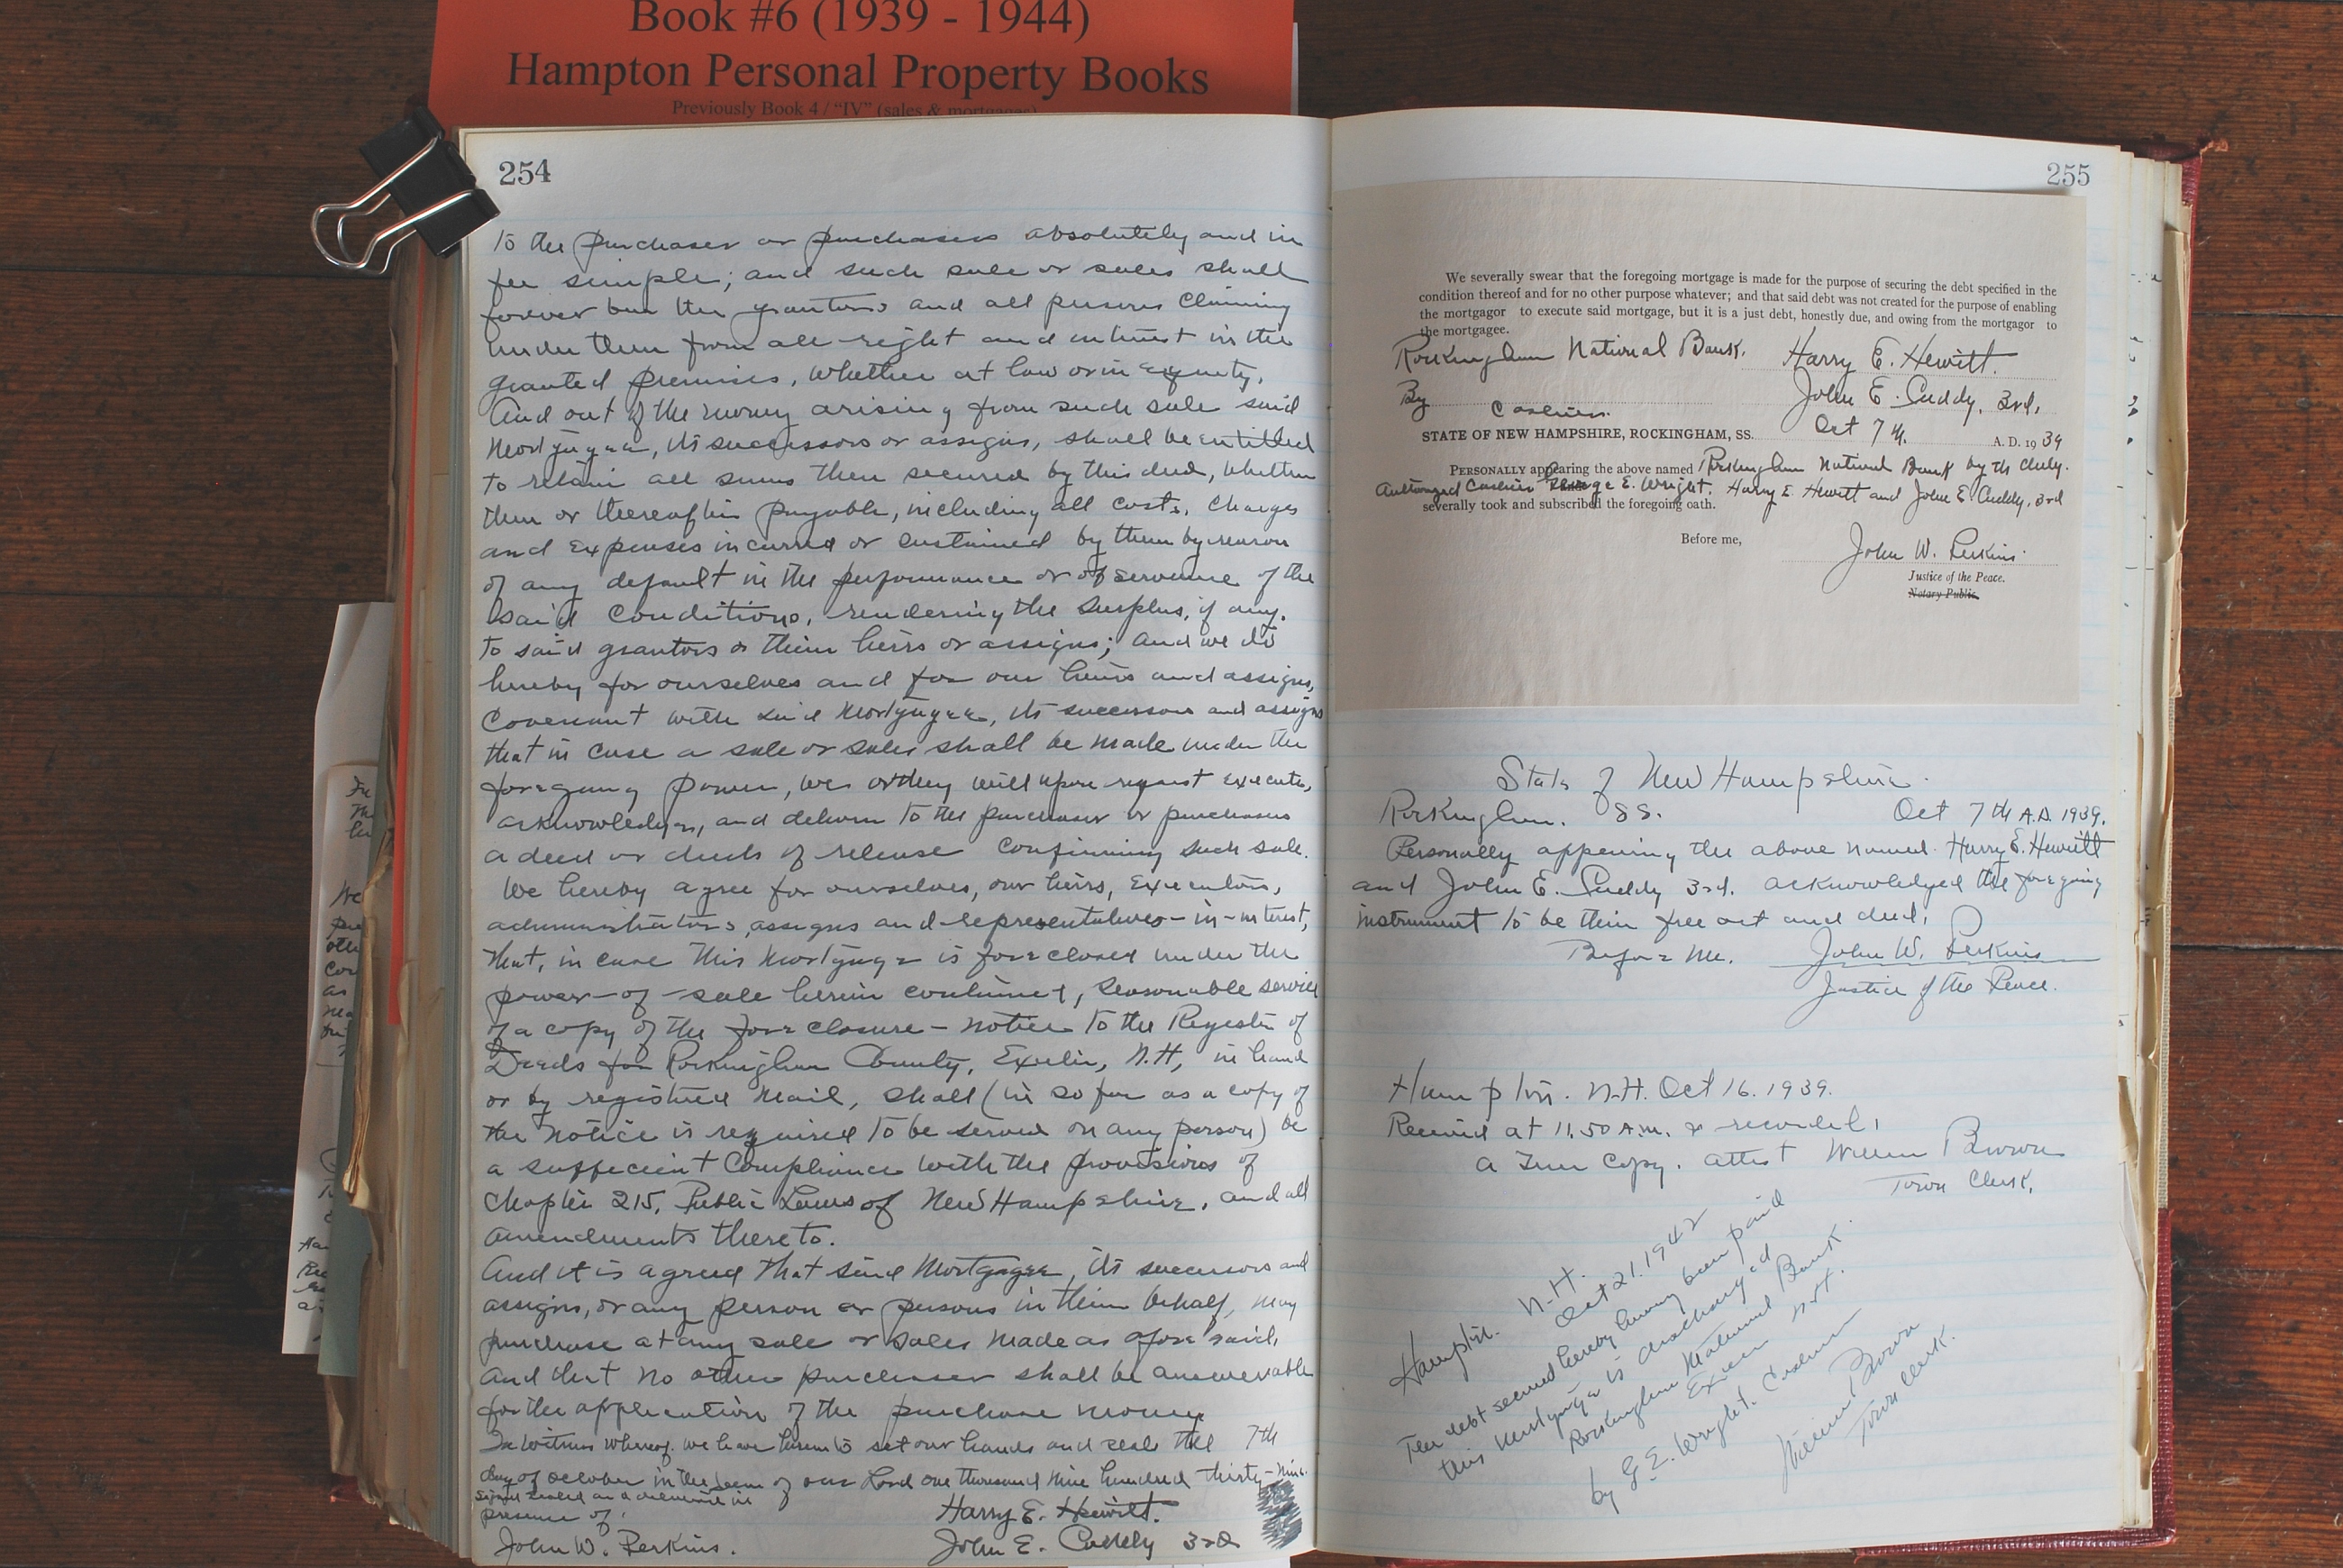 Book #6 (1939 - 1944)
Hampton Personal Property Books
Previously Book 4 / “IV” (sales & mortgages)
254
to the purchaser or purchasers absolutely and in
fee simple; and such sale or sales shall
forever bar the grantors and all persons claiming
under them from all right and interest in the
granted premises, whether at law or in equity.
And out of the money arising from such sale said
Mortgagee, its successors or assigns, shall be entitled
to retain all sums then secured by this deed, whether
then or thereafter payable, including all costs, charges
and expenses incurred or sustained by them by reason
of any default in the performance or observance of the
said conditions, rendering the surplus, if any,
to said grantors or their heirs or assigns; and we do
hereby for ourselves and for our heirs and assigns,
covenant with said Mortgagee, its successors and assigns
that in case a sale or sales shall be made under the
foregoing power, we or they will upon request execute,
acknowledge, and deliver to the purchaser or purchasers
a deed or deeds of release confirming such sale.
We hereby agree for ourselves, our heirs, executors,
administrators, assigns and representatives-in-interest,
that, in case this Mortgage is foreclosed under the
power-of-sale herein contained, seasonable service
of a copy of the foreclosure-notice to the Register of
Deeds for Rockingham County, Exeter, N.H, in hand
or by registered mail, shall (in so far as a copy of
the notice is required to be served on any person) be
a sufficient compliance with the provisions of
Chapter 215, Public Laws of New Hampshire, and all
amendments thereto.
And it is agreed that said Mortgagee, its successors and
assigns, or any person or persons in their behalf, may
purchase at any sale or sales made as aforesaid,
And that no other purchaser shall be answerable
for the application of the purchase money
In Witness whereof we have hereunto set our hands and seals this 7th
day of October in the year of our Lord one thousand nine hundred thirty-nine.
Signed sealed and delivered in
presence of:
Harry E. Hewitt.
John W. Perkins.
John E. Cuddy 3rd
255
We severally swear that the foregoing mortgage is made for the purpose of securing the debt specified in the
condition thereof and for no other purpose whatever; and that said debt was not created for the purpose of enabling
the mortgagor to execute said mortgage, but it is a just debt, honestly due, and owing from the mortgagor to
the mortgagee.
Rockingham National Bank. Harry E. Hewitt.
By John E. Cuddy, 3rd.
Cashier.
STATE OF NEW HAMPSHIRE, ROCKINGHAM, SS. Oct 7th. A. D. 1939
PERSONALLY appearing the above named Rockingham National Bank by its duly
authorized Cashier George E. Wright, Harry E. Hewitt and John E. Cuddy, 3rd
severally took and subscribed the foregoing oath.
Before me,
John W. Perkins
Justice of the Peace.
Notary Public.
State of New Hampshire.
Rockingham. SS. Oct 7th A.D. 1939.
Personally appearing the above named Harry E. Hewitt
and John E. Cuddy 3rd. acknowledged the foregoing
instrument to be their free act and deed,
Before me. John W. Perkins
Justice of the Peace.
Hampton. N.H. Oct 16. 1939.
Received at 11.50 A.M. & recorded,
a True Copy. attest William Brown
Town Clerk.
Hampton. N.H.
Oct 21. 1942
The debt secured hereby having been paid
this mortgage is discharged
Rockingham National Bank.
Exeter N.H.
by G. E. Wright. Cashier
William Brown
Town Clerk.